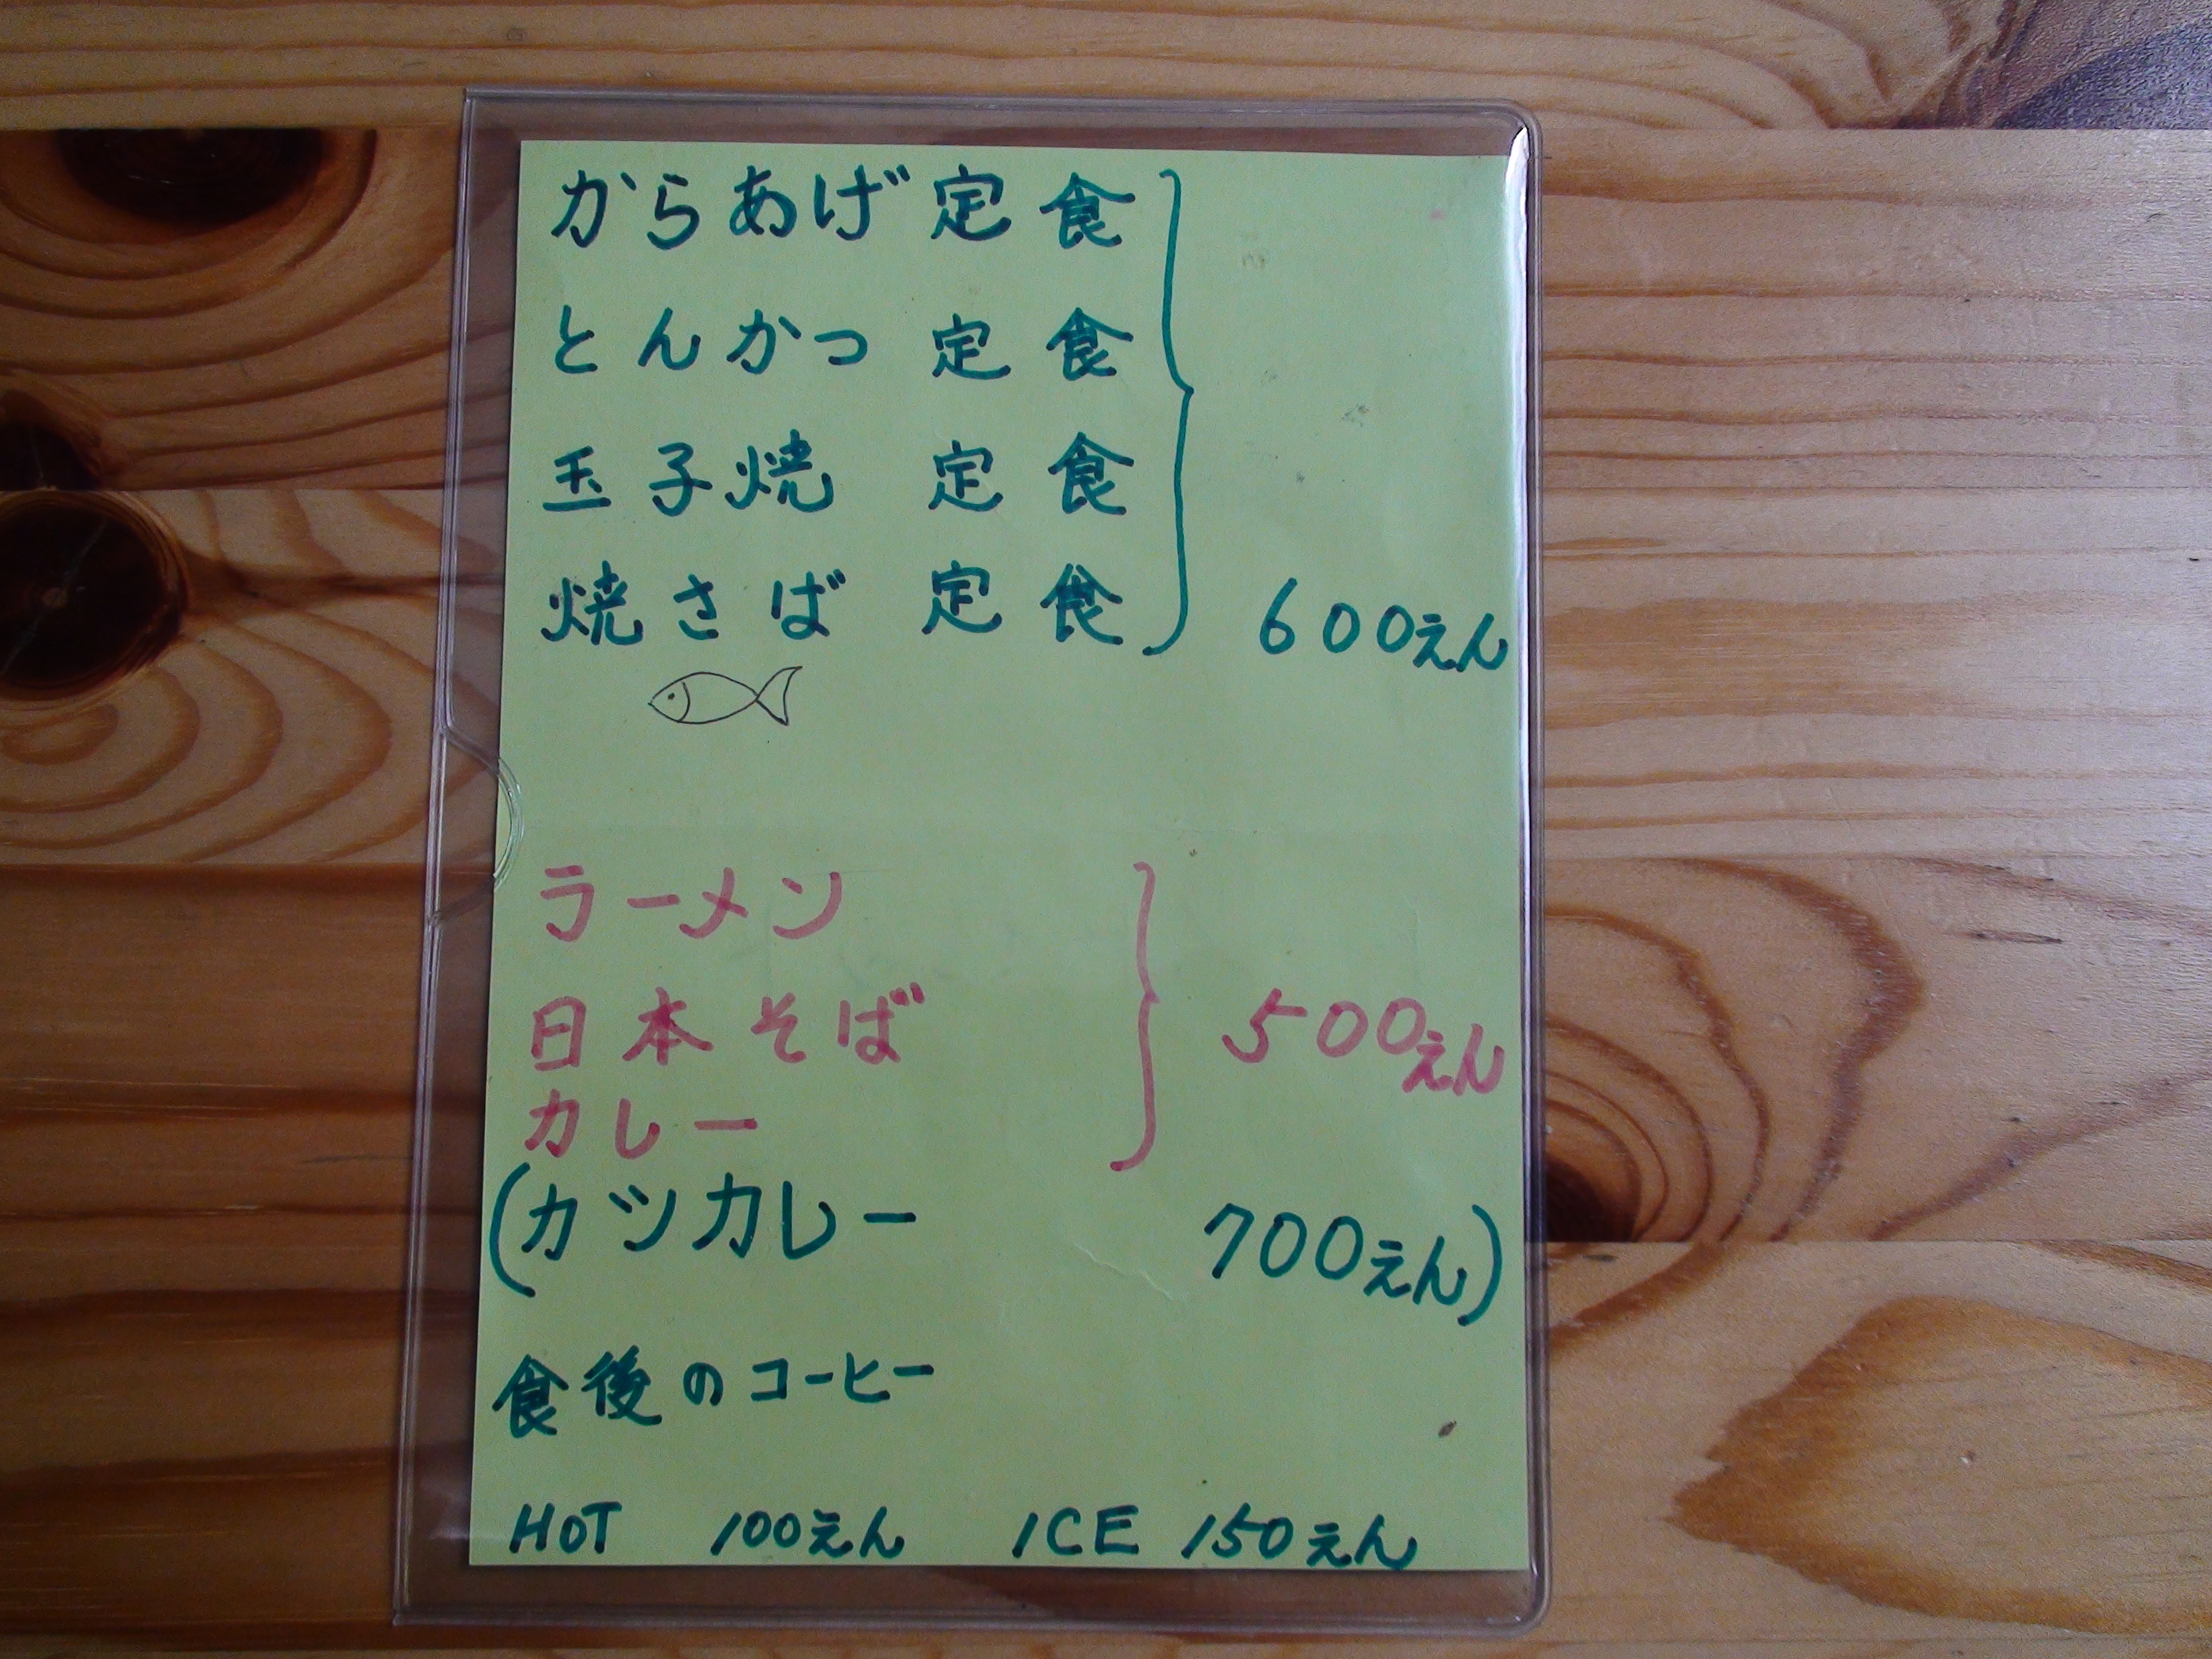 からあげ定食
とんかつ定食
玉子焼定食
焼さば定食 600えん
ラーメン
日本そば 500えん
カレー
(カツカレー 700えん)
食後のコーヒー
HOT 100えん ICE 150えん